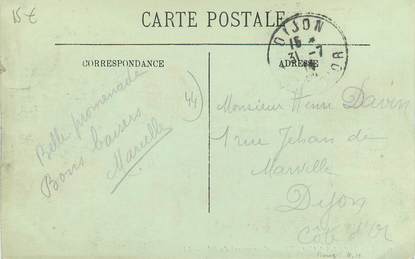 15€
CARTE POSTALE
DIJON
15 *
31 -7
14
D'OR
CORRESPONDANCE
ADRESSE
Belle promenade
Bons baisers
Marcelle
Monsieur Henri Davin
1 rue Jehan de
Marville
Dijon
Côte d'Or